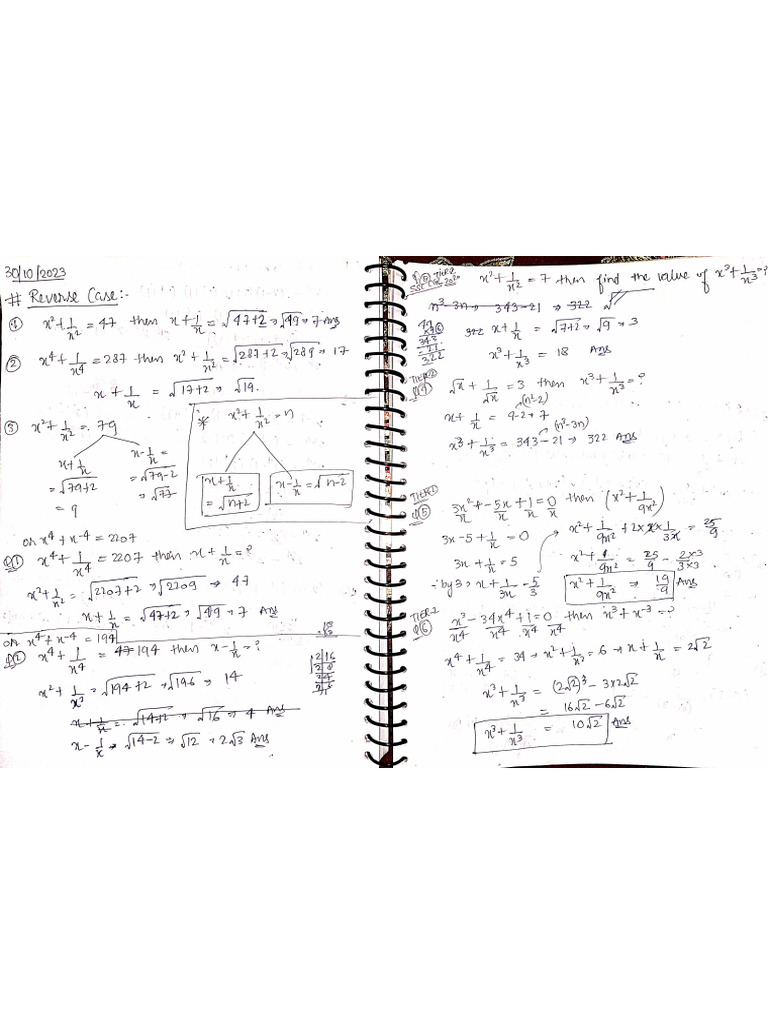 30/10/2023
# Reverse Case:-
① x²+1/x² = 47 then x+1/x = √47+2 ⇒ √49 ⇒ 7 Ans
② x⁴+1/x⁴ = 287 then x²+1/x² = √287+2 ⇒ √289 ⇒ 17
x+1/x = √17+2 ⇒ √19.
③ x²+1/x² = 79
x+1/x = √79+2 = 9
x-1/x = √79-2 ⇒ √77
* x²+1/x² = n
x+1/x = √n+2
x-1/x = √n-2
or x⁴+x-⁴ = 2207
Q1 x⁴+1/x⁴ = 2207 then x+1/x = ?
x²+1/x² = √2207+2 ⇒ √2209 ⇒ 47
x+1/x = √47+2 ⇒ √49 = 7 Ans
or x⁴+x-⁴ = 194
Q2 x⁴+1/x⁴ = 194 then x-1/x = ?
x²+1/x² = √194+2 ⇒ √196 ⇒ 14
x+1/x = √14+2 ⇒ √16 ⇒ 4 Ans
x-1/x ⇒ √14-2 ⇒ √12 = 2√3 Ans
x²+1/x² = 7 then find the value of x³+1/x³ = ?
n³-3n ⇒ 343-21 ⇒ 322
x+1/x = √7+2 ⇒ √9 ⇒ 3
343
21
322
x³+1/x³ = 18 Ans
TIER-2
Q4 √x+1/√x = 3 then x³+1/x³ = ?
(n²-2)
x+1/x = 9-2 = 7
(n³-3n)
x³+1/x³ = 343-21 ⇒ 322 Ans
TIER-1
Q5 3x²/x - 5x/x + 1/x = 0/x then (x²+1/9x²)
3x-5+1/x = 0
x²+1/9x²+2×x×1/3x = 25/9
3x+1/x = 5
x²+1/9x² = 25/9 - 2×3/3×3
by 3 ⇒ x+1/3x = 5/3
x²+1/9x² ⇒ 19/9 Ans
TIER-2
Q6 x⁸/x⁴ - 34x⁴/x⁴ + 1/x⁴ = 0/x⁴ then x³+x-³ = ?
x⁴+1/x⁴ = 34 ⇒ x²+1/x² = 6 ⇒ x+1/x = 2√2
x³+1/x³ = (2√2)³ - 3×2√2
= 16√2-6√2
x³+1/x³ = 10√2 Ans